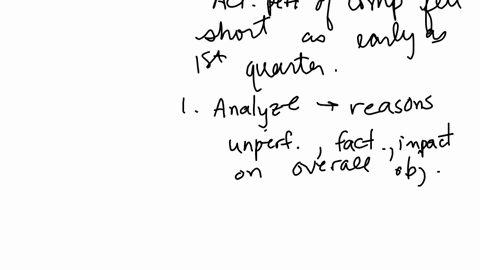 Act. perf of comp fell
short as early as
1st quarter.
1. Analyze → reasons
unperf., fact., impact
on overall obj.